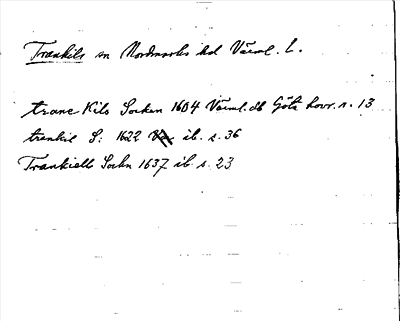 Trankils sn Nordmarks hd Värml. l.
trane Kils Socken 1604 Värml. db Göta hovr. n. 13
trankil S: 1622 ib. s. 36
Trankiells Sochn 1637 ib. s. 23